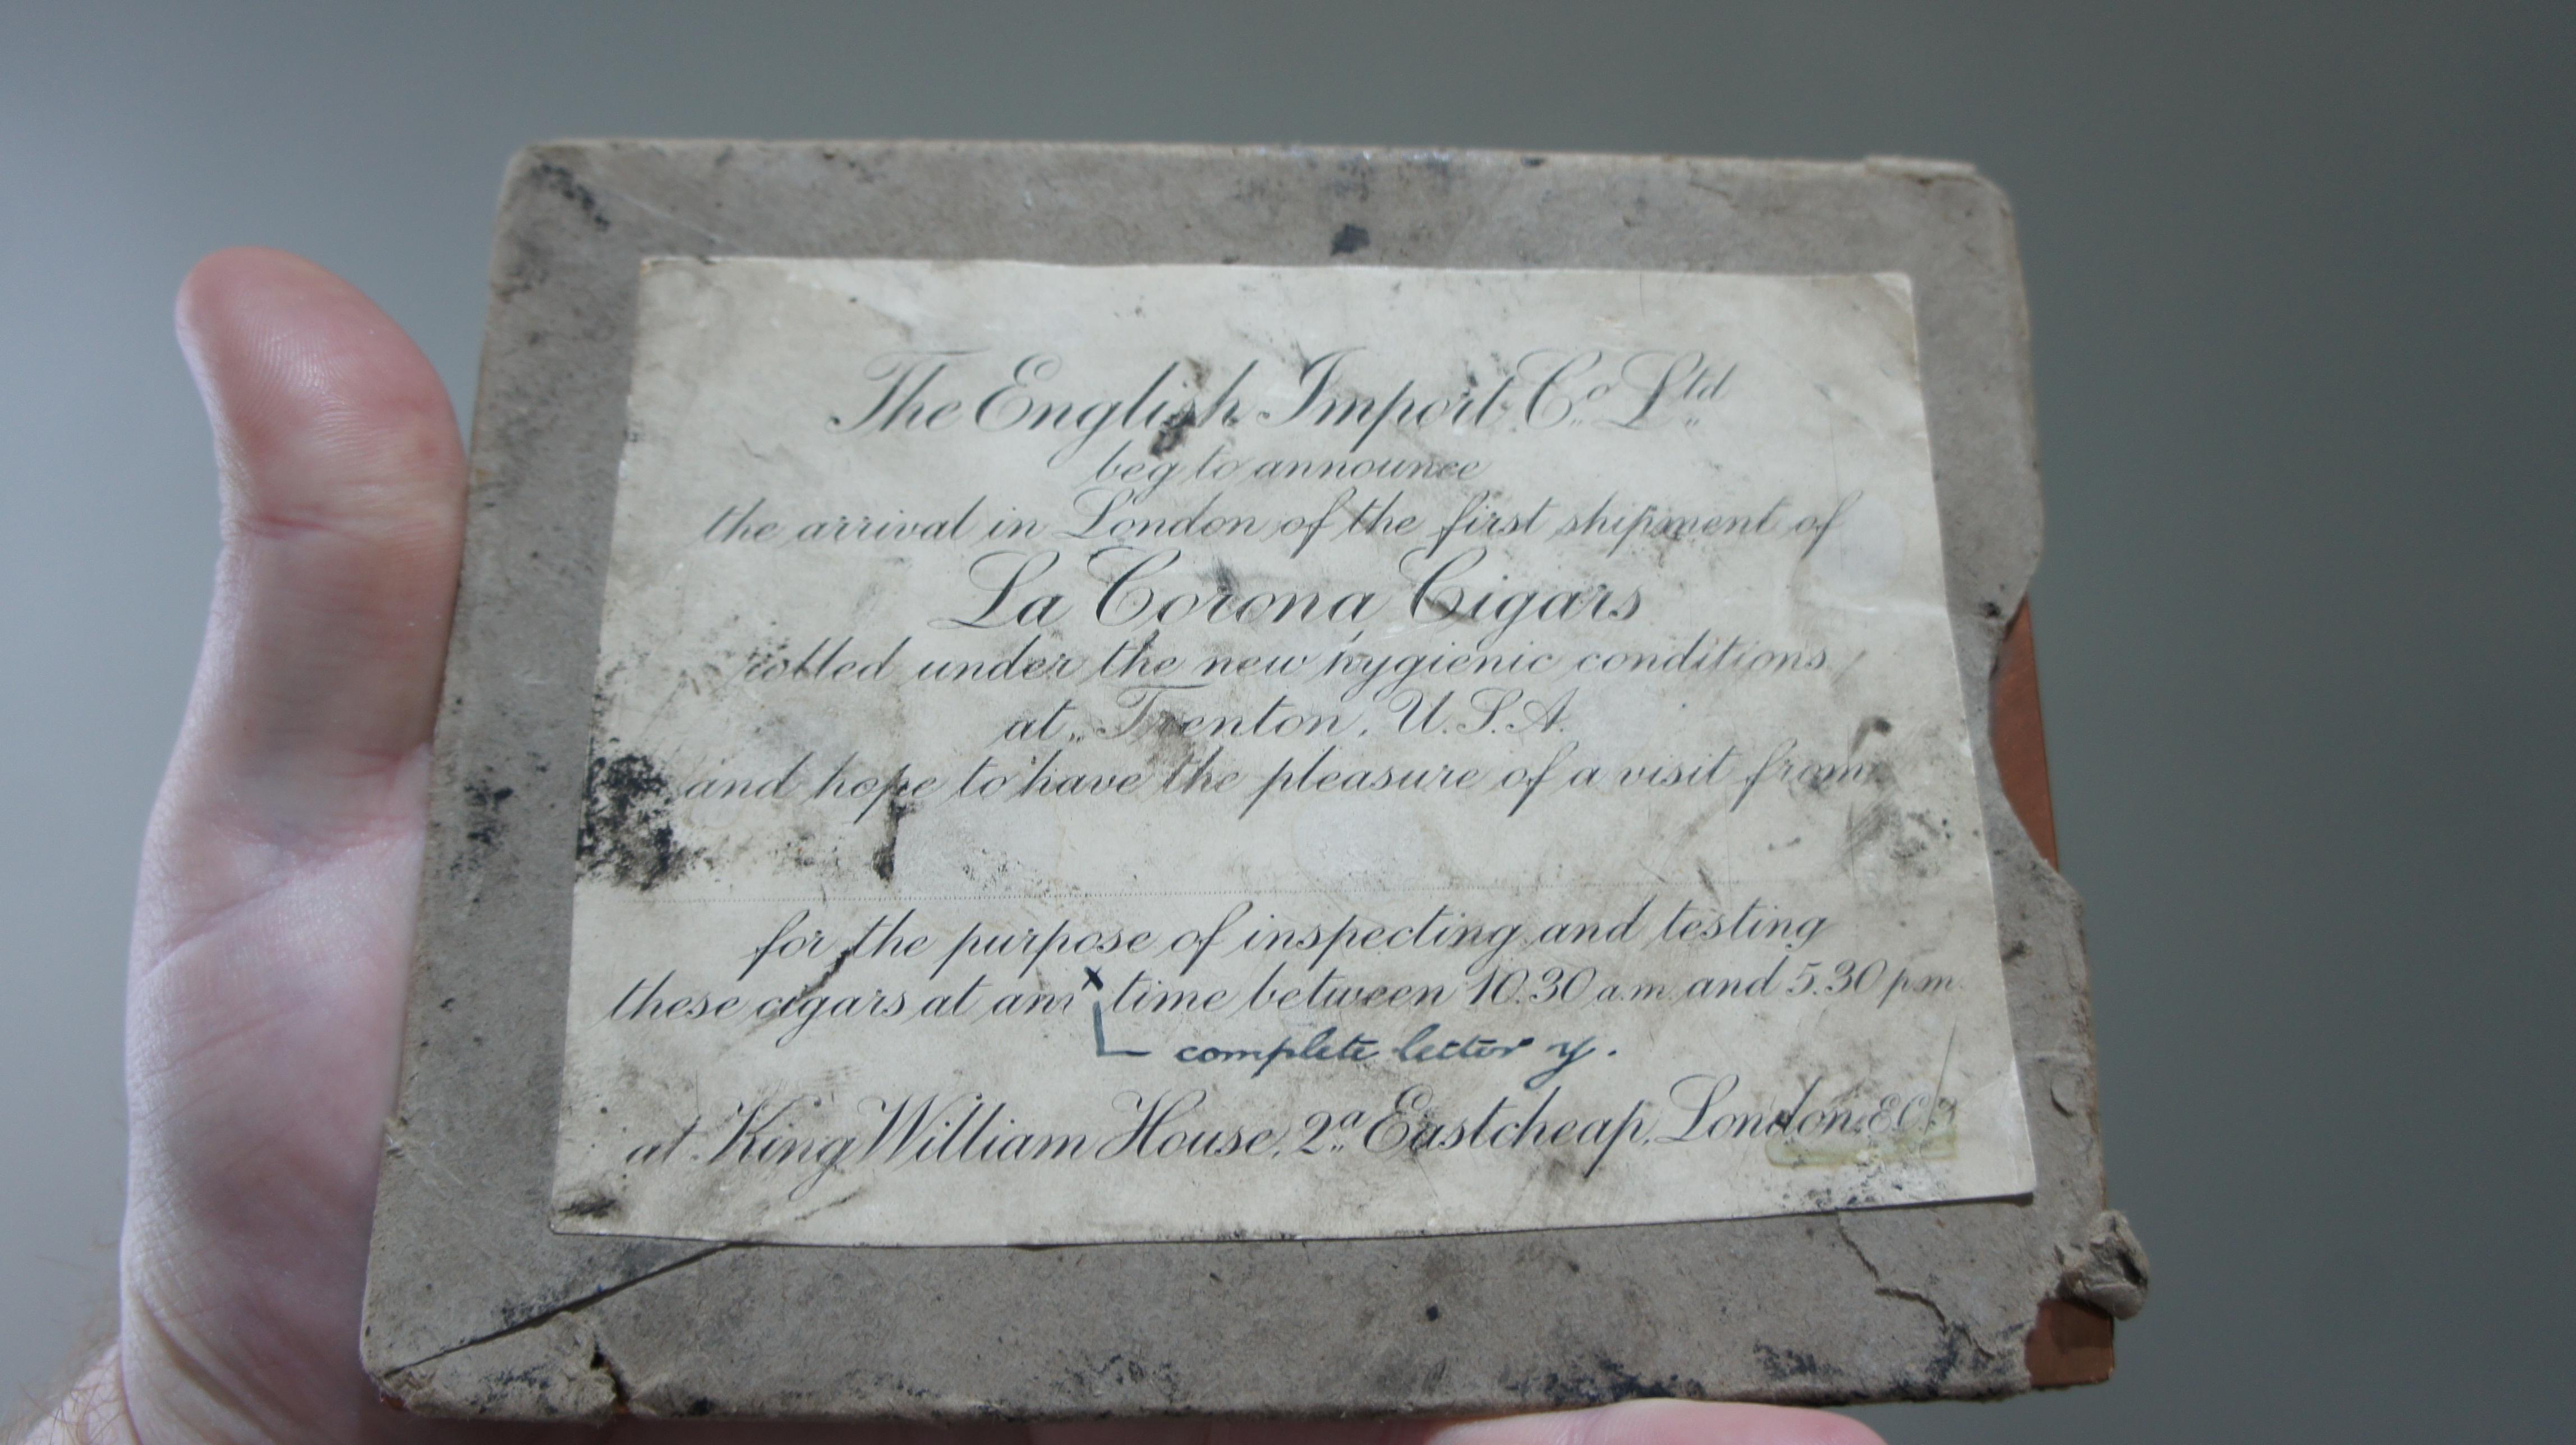 The English Import Co Ltd
beg to announce
the arrival in London of the first shipment of
La Corona Cigars
rolled under the new hygienic conditions
at Trenton, U.S.A.
and hope to have the pleasure of a visit from
for the purpose of inspecting and testing
these cigars at any x time between 10.30 a.m. and 5.30 p.m.
complete letter y.
at King William House, 2a Eastcheap, London, E.C.